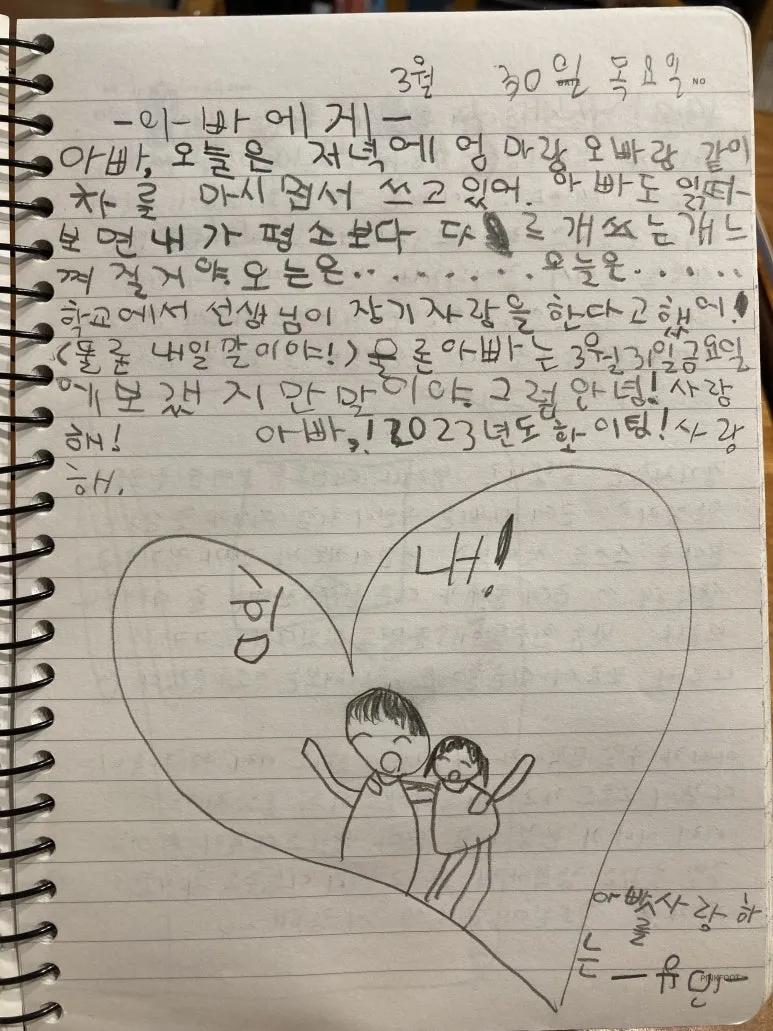 3월 30일 목요일 NO
-아빠에게-
아빠, 오늘은 저녁에 엄마랑 오빠랑 같이
차를 마시면서 쓰고 있어. 아빠도 읽따
보면 내가 평소보다 다르개 쓰는개 느
껴질거야 오늘은‥‥‥‥ 오늘은‥‥‥
학교에서 선생님이 장기자랑을 한다고 했어!
(물론 내일 말이야!) 물론 아빠는 3월 31일 금요일
에 보갰지만 말이야. 그럼 안녕! 사랑
해! 아빠,! 2023년도 화이팅! 사랑
해.
내!
아빠를 사랑하
는
-유
PINKFOOT